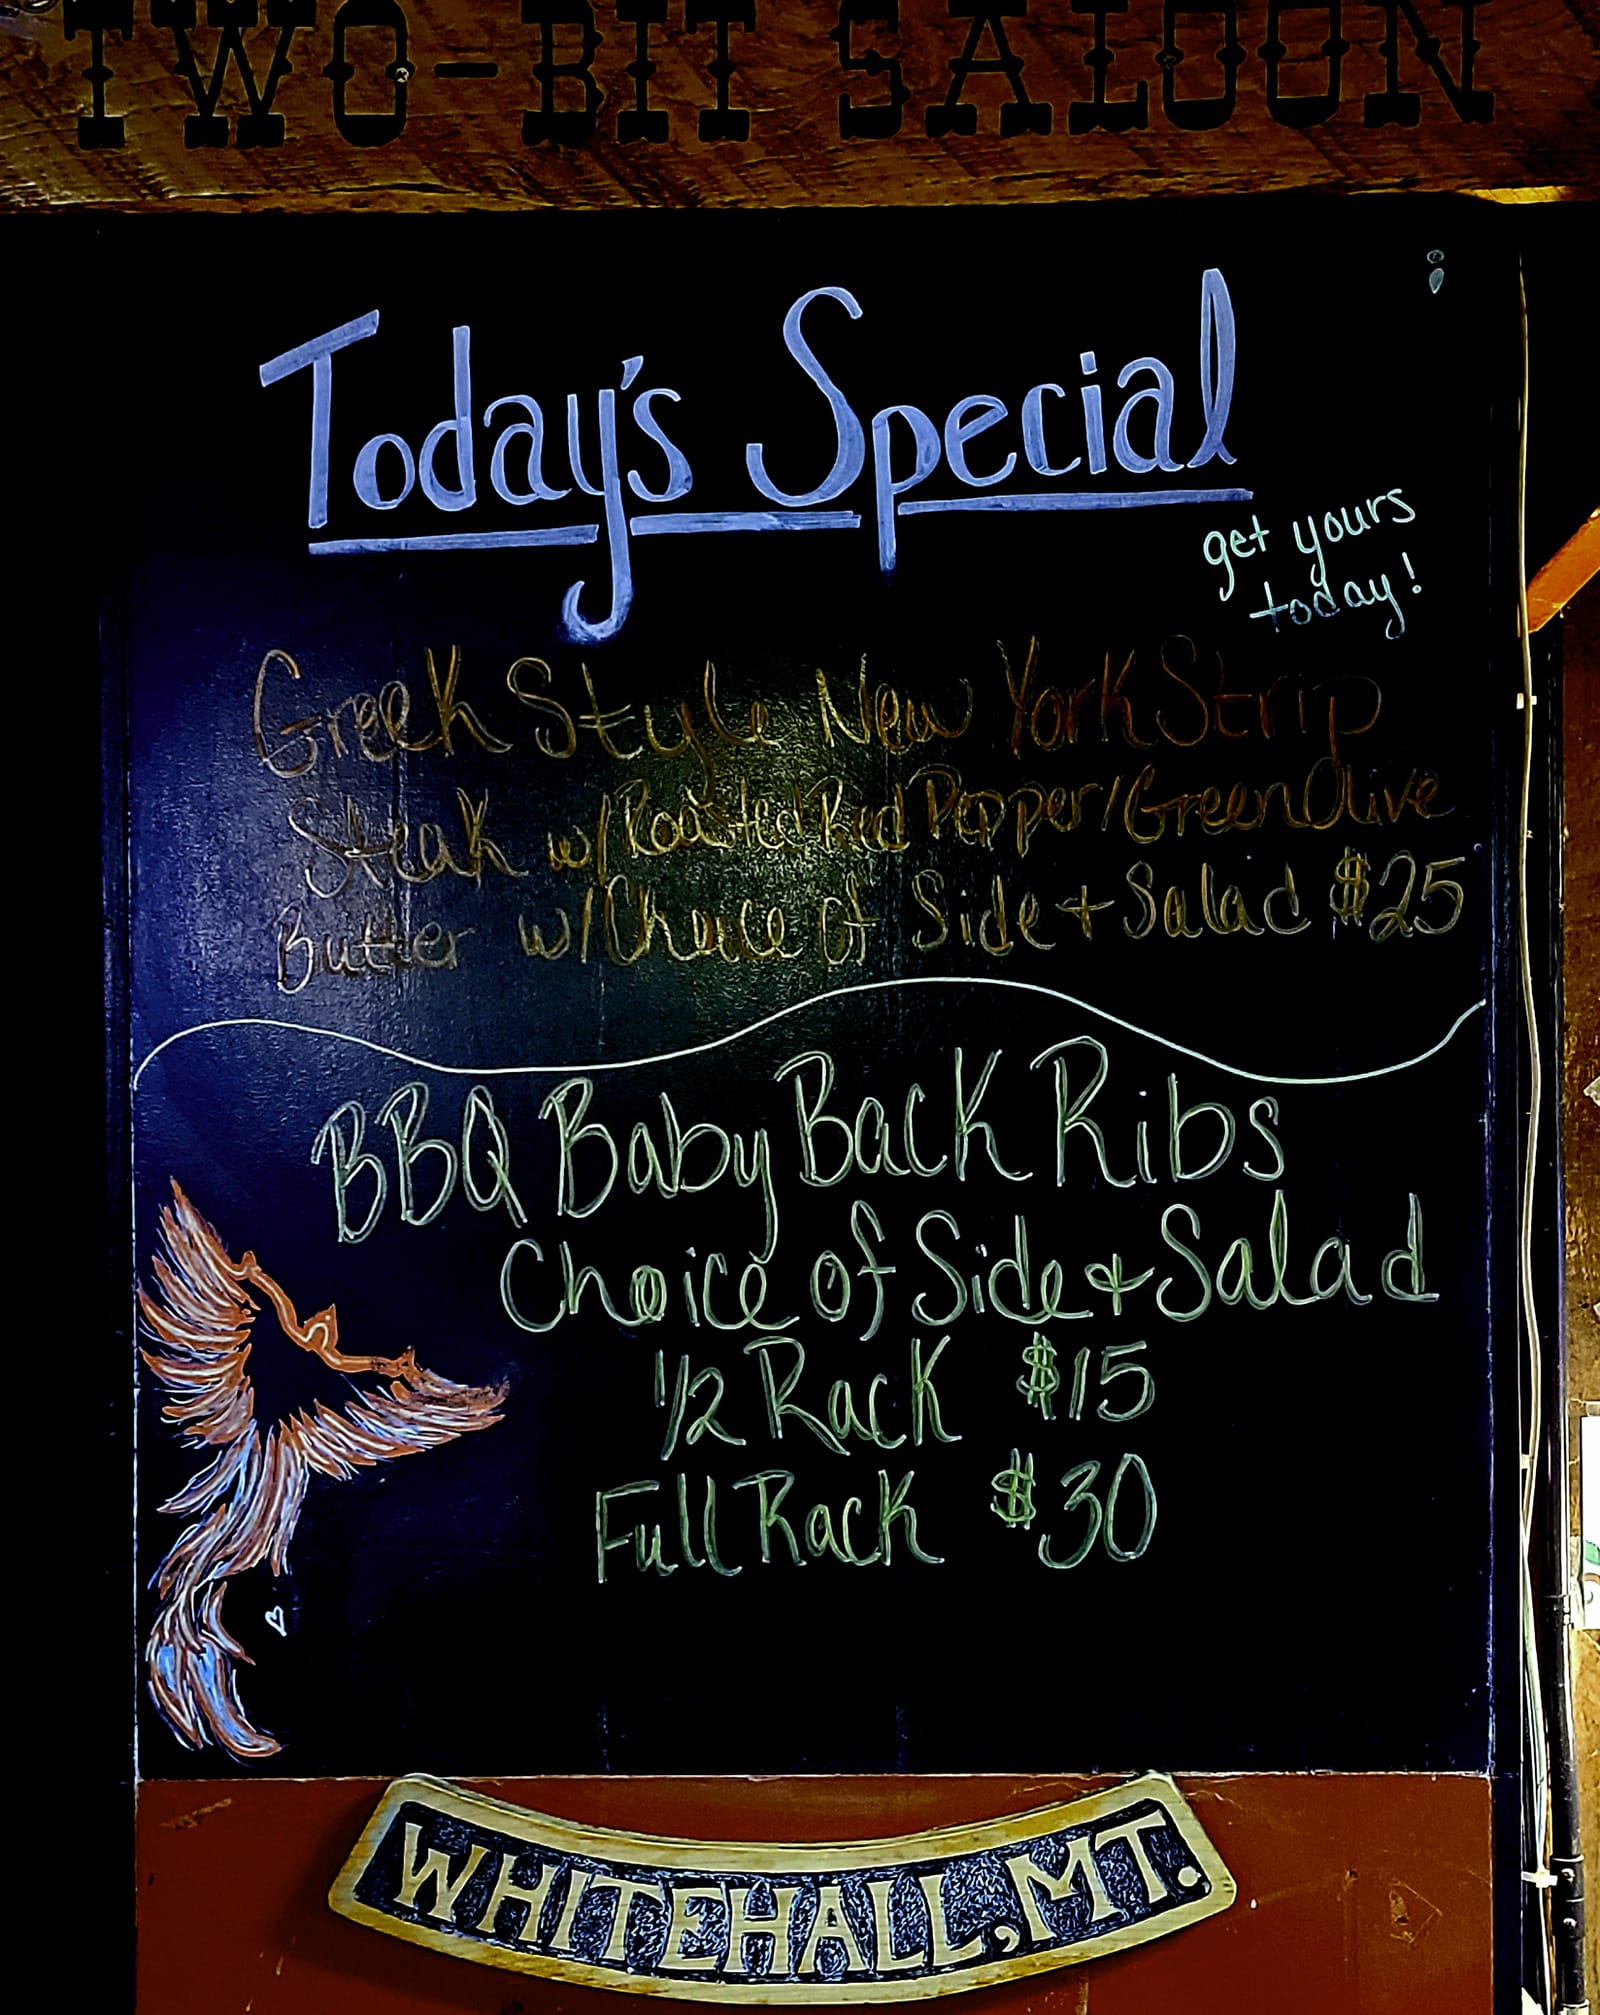 TWO-BIT SALOON
Today's Special
get yours
today!
Greek Style New York Strip
Steak w/ Roasted Red Pepper/Green Olive
Butter w/ Choice of Side + Salad $25
BBQ Baby Back Ribs
Choice of Side + Salad
1/2 Rack $15
Full Rack $30
WHITEHALL, MT.